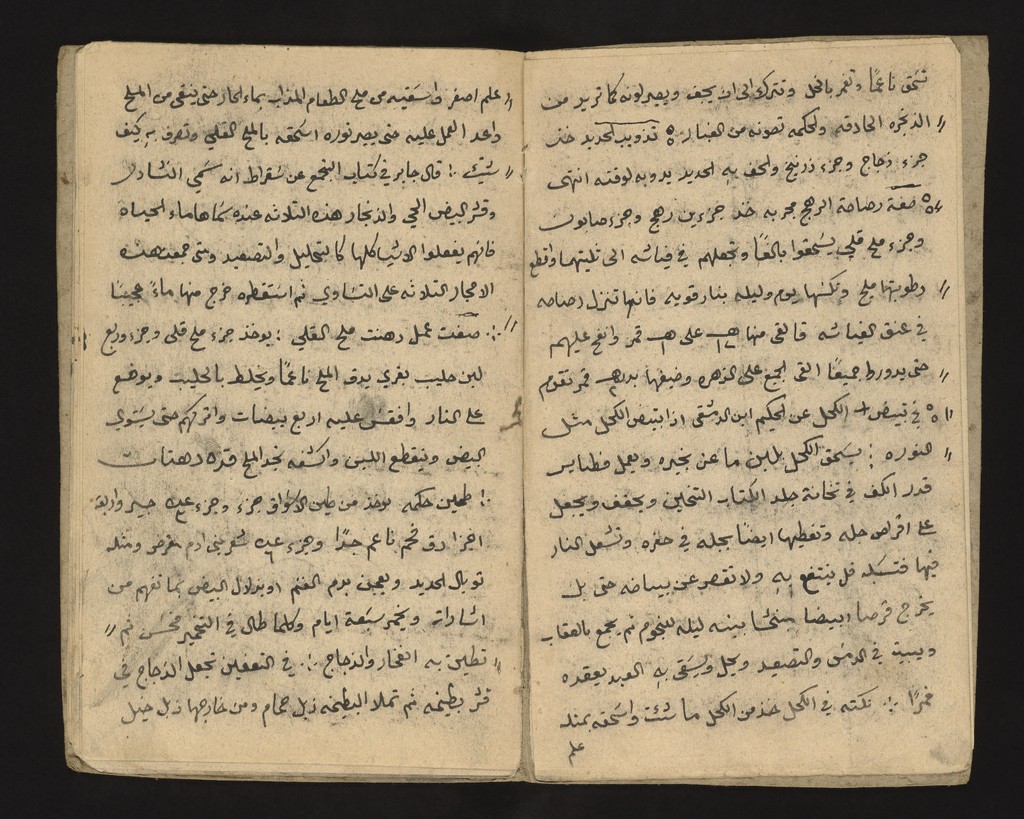 تسحق ناعما وتغمر بالخل وتترك الى ان يجف ويصير لونه كما تريد من
الذخره الحاذقه والحكمه تصونه من الغبار تذويب الحديد خذ
جزء زجاج وجزء زرنيخ والحف به الحديد يذوبه لوقته انتهى
صفة رصاصة الرهج مجربه خذ جزءين رهج وجزء صابون
وجزء ملح قلي يسحقوا بالغا وتجعلهم في قياشه الى ثلثيتها واقطع
رطوبتها ملح ونكسها يوم وليله بنار قويه فانها تنزل رصاصه
في عنق القياشه فالقى منها على قمر وانفخ عليهم
حتى يدور جميعا القى الجمع على الزهره وضيفها بدرهم قمر تقوم
في تبييض الكحل عن الحكيم ابن الدمشقي اذا ابتيض الكحل مثل
النوره يسحق الكحل بلبن ماعز بخيره ويعمل فطاير
قدر الكف في ثخانة جلد الكتاب الثخين ويجفف ويجعل
على اقراص جله وتغطيها ايضا بجله في حفره وتشعل النار
فيها فتسكه فل ينتفع به ولا تقصر عن بياضه حتى بك
يخرج قرصا ابيضا بيته ليله للنجوم ثم يجمع بالعقاب
ويبيت في الدمس والتصعيد ويحل ويسقى به العبد يعقده
قمرا نكته في الكحل خذ من الكحل ما شئت واسحقه بمثله
علم
علم اصفر واسقيه من ملح الطعام المذاب بماء الحار حتى ينقى من الملح
واعد العمل عليه حتى يصير نوره اسحقه بالملح القلي وتصرف به كيف
شئت قال جابر في كتاب التجمع عن سقراط انه سمى النشادر
وقشر البيض الحي والزنجار هذه الثلاثه عنده سماها ماء الحياه
فانهم يفعلوا الاشيا كلها كالتحليل والتصعيد ومتى جمعت هذه
الاحجار الثلاثه على التساوي ثم استقطره خرج منها ماء عجيبا
صفت عمل دهنت ملح القلي يوخذ جزء ملح قلي وجزء وربع
لبن حليب بقري يدق الملح ناعما ويخلط بالحليب ويوضع
على النار وافقش عليه اربع بيضات واتركهم حتى يستوي
البيض ويتقطع اللبن واكشفه تجد الملح قد دهنات
طين حكمه يوخذ من طين الاسواق جزء وجزء جير واربعة
اجزا دق فحم ناعم جدا وجزء شعر بني ادم مقرض ومثله
توبال الحديد ويعجن بدم الغنم او بزلال البيض بما تفهم من
اشارات ويخمر سبعة ايام وكلما طال في التخمير فحسن ثم
تطين به الفخار والزجاج في التعفين تجعل الزجاج في
قشر بطيخه ثم تملا البطيخه زبل حمام ومن خارجها زبل خيل